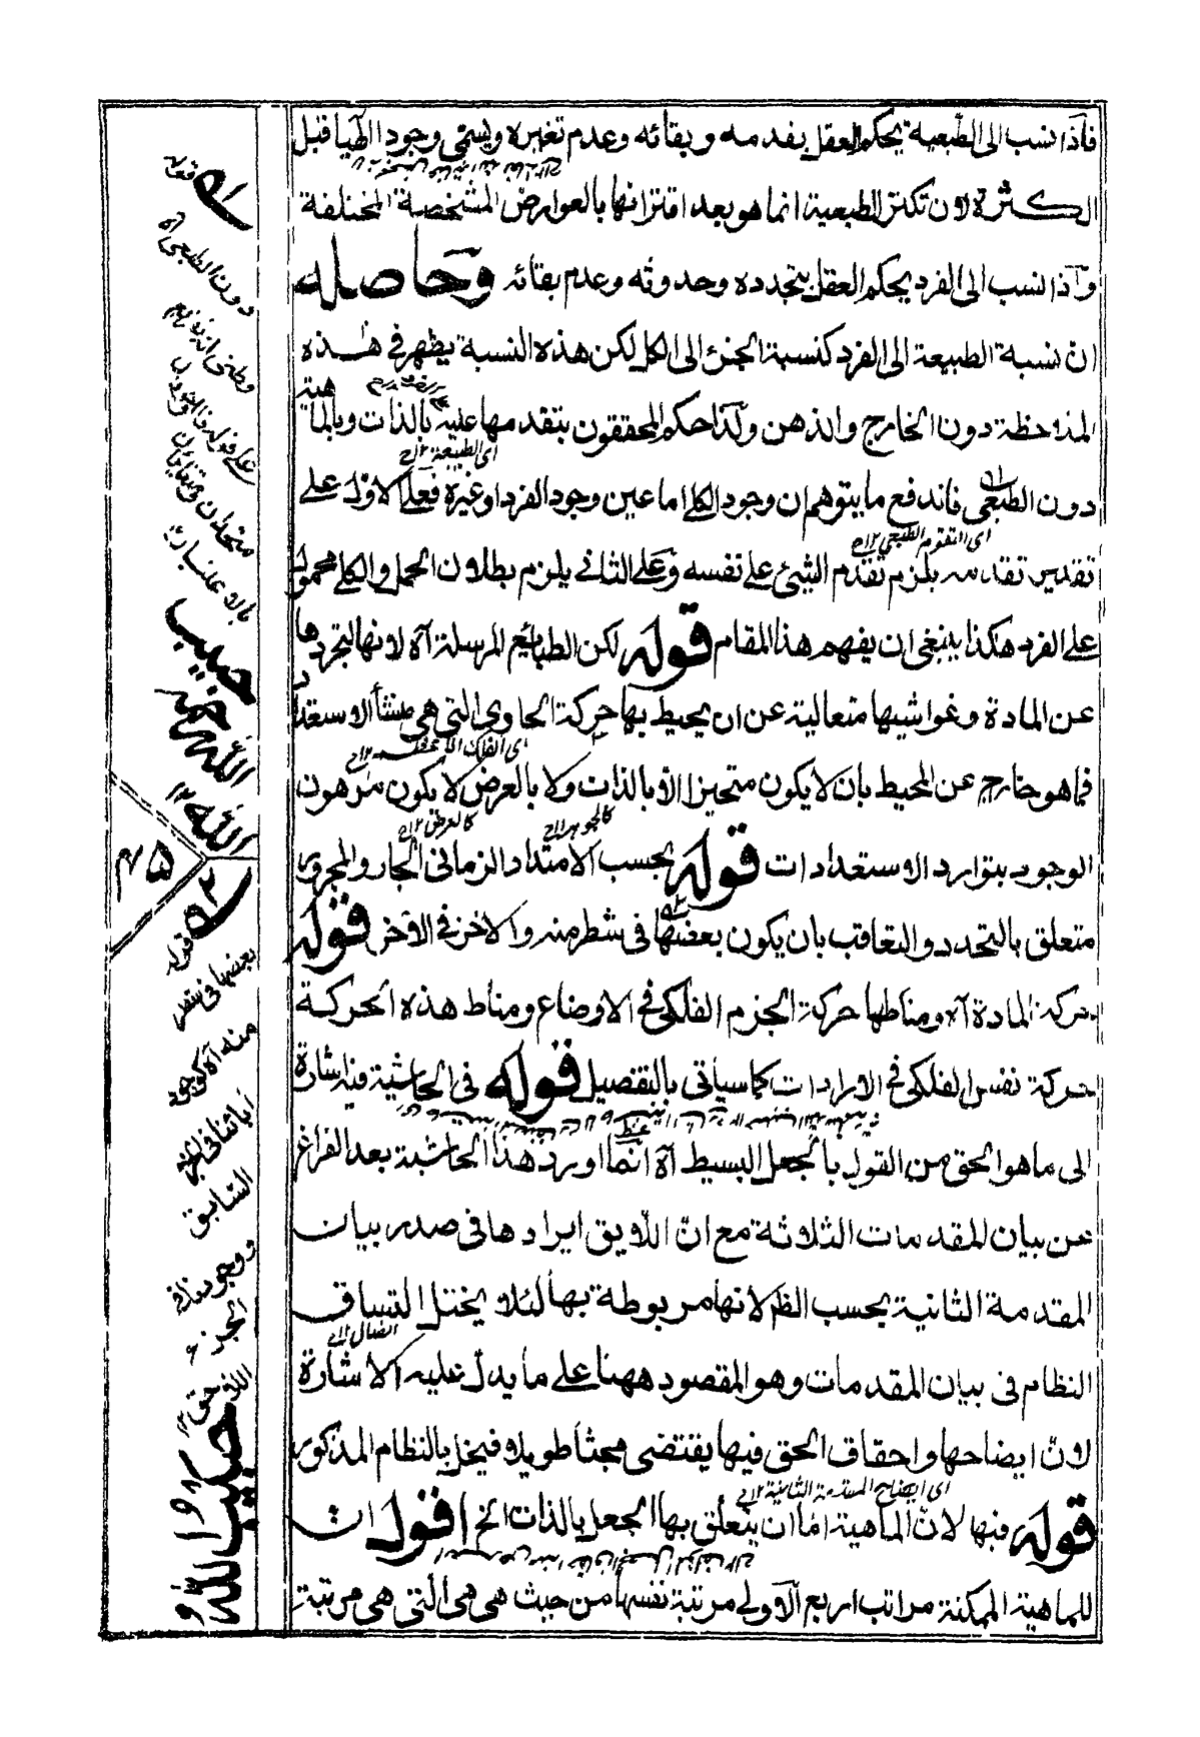 فاذا نسب الى الطبعية يحكم العقل بقدمه وبقائه وعدم تغيره ويسمى وجودا الٰهيا قبل
الكثرة لان تكثر الطبعية انما هو بعد اقترانها بالعوارض المشخصة المختلفة
واذا نسب الى الفرد يحكم العقل بتجدده وحدوثه وعدم بقائه وحاصله
ان نسبة الطبيعة الى الفرد كنسبة الجزئ الى الكل لكن هذه النسبة يظهر فى هذه
الملاحظة دون الخارج والذهن ولذا حكم المحققون بتقدمها عليه بالذات وبالماهية
اى الطبيعة ١٢ ح
دون الطبعى فاندفع ما يتوهم ان وجود الكلى اما عين وجود الفرد او غيره فعلى الاول على
اى التقوم الطبعى ١٢ ح
تقدير تقدمه يلزم تقدم الشئ على نفسه وعلى الثانى يلزم بطلان الحمل والكلى محمول
على الفرد هكذا ينبغى ان يفهم هذا المقام قوله لكن الطبائع المرسلة آه لانها لتجردها
عن المادة وغواشيها متعالية عن ان يحيط بها حركة الحاوى التى هى منشأ الاستعداد
اى الفلك الاعظم ١٢ ح
فما هو خارج عن المحيط بان لا يكون متحيزا لا بالذات ولا بالعرض لا يكون مرهون
كالجوهر ١٢ ح كالعرض ١٢ ح
الوجود بتوارد الاستعدادات قوله بحسب الامتداد الزمانى الجار والمجرور
متعلق بالتجدد والتعاقب بان يكون بعضها فى شطر منه والاخر فى الآخر قوله
حركة المادة آه ومناطها حركة الجرم الفلكى فى الاوضاع ومناط هذه الحركة
حركة نفس الفلكى فى الارادات كما سيأتى بالتفصيل قوله فى الحاشية فيه اشارة
الى ما هو الحق من القول بالجعل البسيط آه انما اورد هذا الحاشية بعد الفراغ
عن بيان المقدمات الثلاثة مع ان اللايق ايرادها فى صدر بيان
المقدمة الثانية بحسب الظم لانها مربوطة بها لئلا يختل التساق
اتصال ١٢ ح
النظام فى بيان المقدمات وهو المقصود ههنا على ما يدل عليه الاشارة
لان ايضاحها واحقاق الحق فيها يقتضى مبحثا طويلا فيخل بالنظام المذكور
اى ايضاح المقدمة الثانية ١٢ ح
قوله فيها لان الماهية اما ان يتعلق بها الجعل بالذات الخ اقول ان
للماهية الممكنة مراتب اربع الاولى مرتبة نفسها من حيث هى هى التى هى مرتبة
قوله
دون الطبعى آه
متحدان
بالاعتبار
حبيب
الله
الله ١٢
٤٥
قوله
بعضها فى شطر
منه آه كوجود
السابق
الجزء
حبيب الله